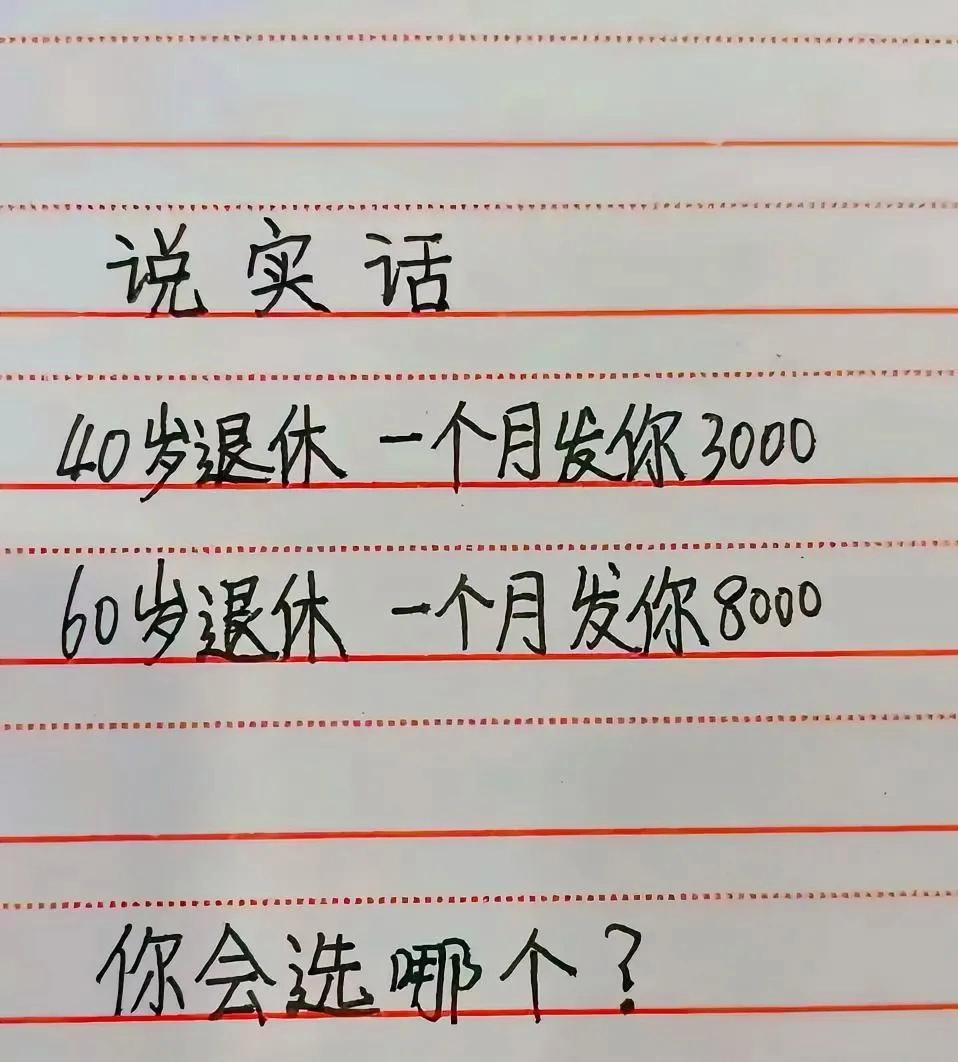 说实话
40岁退休 一个月发你3000
60岁退休 一个月发你8000
你会选哪个?